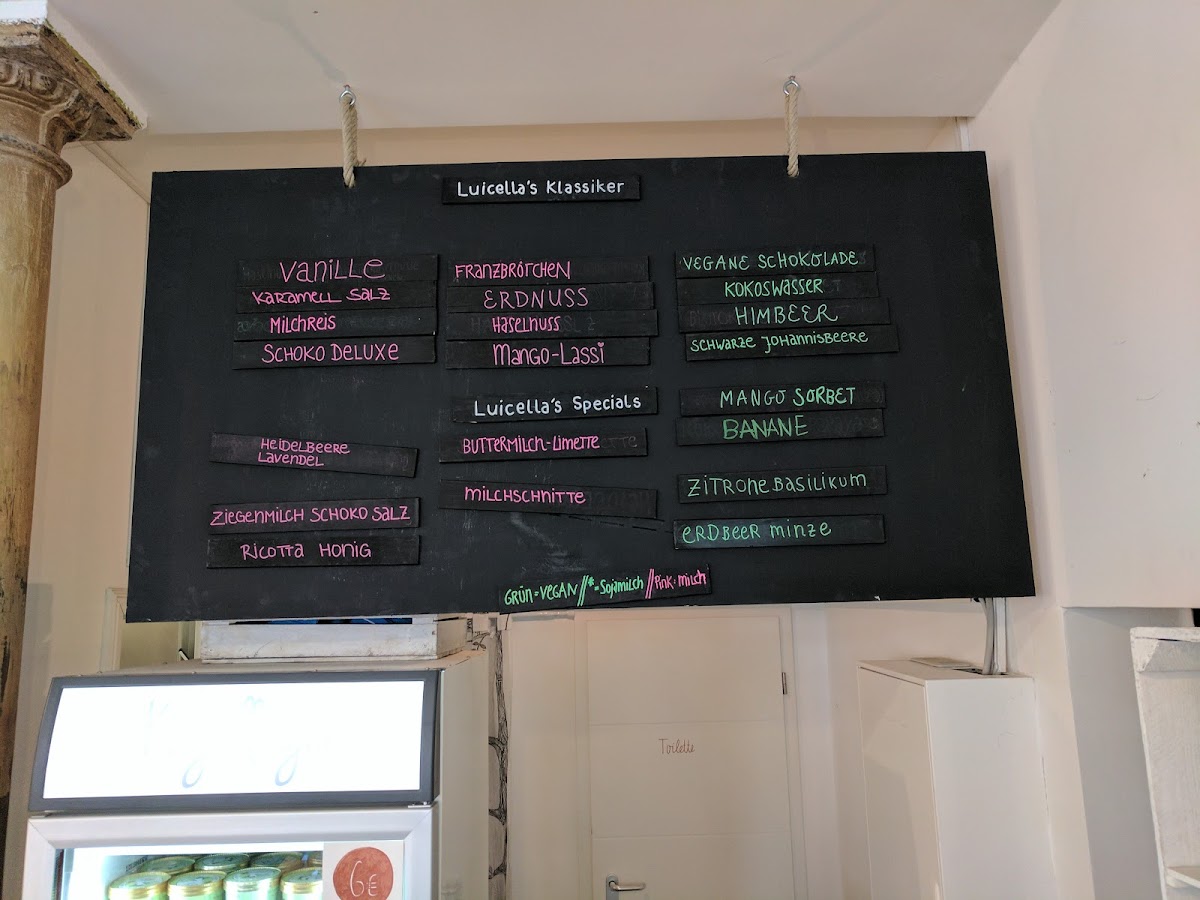 Luicella's Klassiker
Vanille
Karamell Salz
Milchreis
Schoko Deluxe
FRANZBRÖTCHEN
ERDNUSS
Haselnuss
Mango-Lassi
VEGANE SCHOKOLADE
KOKOSWASSER
HIMBEER
SCHWARZE JOHANNISBEERE
Luicella's Specials
Heidelbeere
Lavendel
ZIEGENMILCH SCHOKO SALZ
RICOTTA HONIG
BUTTERMILCH-LIMETTE
MILCHSCHNITTE
MANGO SORBET
BANANE
ZITRONE BASILIKUM
ERDBEER MINZE
GRÜN=VEGAN//*=Sojamilch//Pink=milch
Toilette
6€